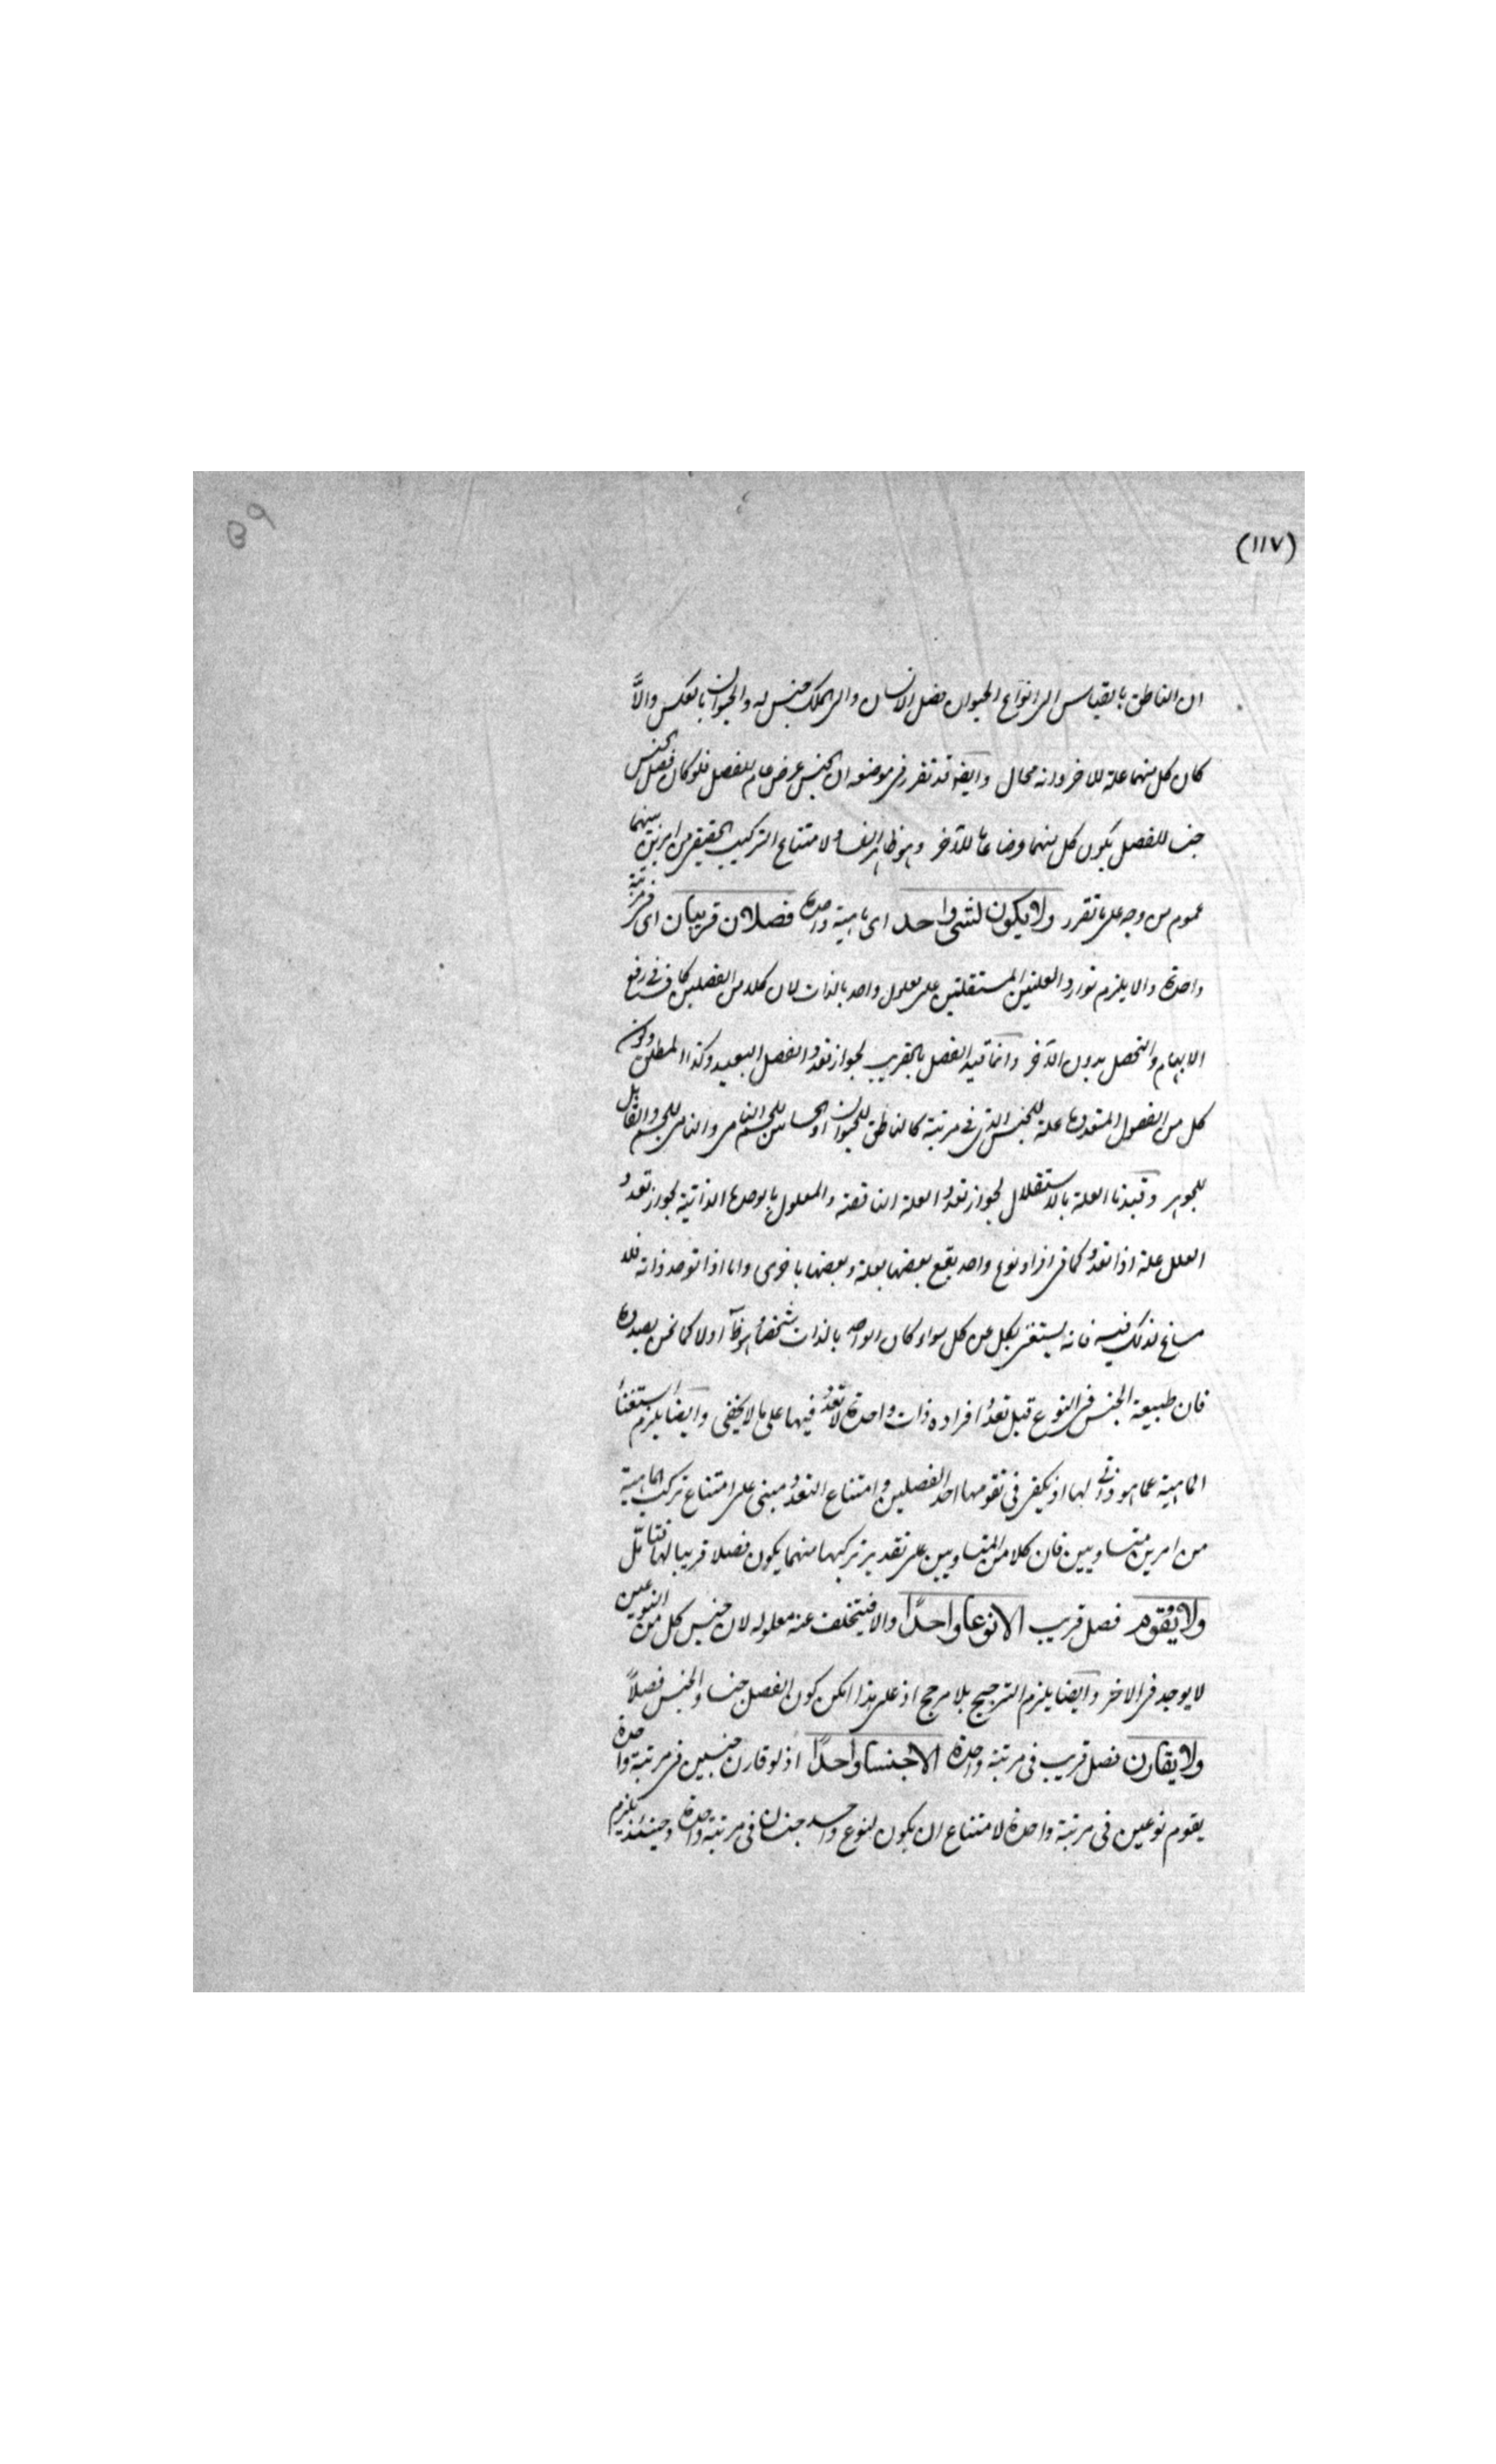 (١١٧)
٥٩
ان الناطق بالقياس الى انواع الحيوان فصل الانسان والى الملك جنس له والحيوان بالعكس والاّ
كان كل منهما علة للاخر وانه محال وايضا قد تقرر فى موضعه ان الجنس عرض عام للفصل فلو كان فصل الجنس
جنسا للفصل يكون كل منهما عرضا عاما للآخر وهو ظاهر الفساد ولامتناع التركيب الحقيقى من امرين بينهما
عموم من وجه على ما تقرر ولا يكون لشئ واحد اى ماهية واحدة فصلان قريبان اى فى مرتبة
واحدة والا يلزم توارد العلتين المستقلتين على معلول واحد بالذات لان كلا من الفصلين كاف فى رفع
الابهام والتحصل بدون الآخر وانما قيد الفصل بالقريب لجواز تعدد الفصل البعيد وكذا المطلق وكون
كل من الفصول المتعددة علة للجنس الذى فى مرتبة كالناطق للحيوان او الحساس للجسم النامى والنامى للجسم والقابل
للجوهر وقيدنا العلة بالاستقلال لجواز تعدد العلة الناقصة والمعلول بالوحدة الذاتية لجواز تعدد
العلل علة اذا تعدد كما فى افراد نوع واحد يقع بعضها بعلة وبعضها باخرى واما اذا توحد ذاته فلا
مساغ لذلك فيه فانه يستغنى بكل عن كل سواء كان الواحد بالذات شخصا هوظا اولا كما نحن بصدده
فان طبيعة الجنس فى النوع قبل تعدد افراده ذات واحدة لا تعدد فيها على ما لا يخفى وايضا يلزم استغناء
الماهية عما هو ذاتى لها اذ يكفى فى تقومها احد الفصلين وامتناع التعدد مبنى على امتناع تركب الماهية
من امرين متساويين فان كلا من المتساويين على تقدير تركبها منهما يكون فصلا قريبا لها فتأمل
ولا يقوم فصل قريب الا نوعا واحدًا والا فيتخلف عنه معلوله لان جنس كل من النوعين
لا يوجد فى الاخر وايضا يلزم الترجيح بلا مرجح اذ على هذا امكن كون الفصل جنسا والجنس فصلاً
ولا يقارن فصل قريب فى مرتبة واحدة الا جنسا واحدًا اذ لو قارن جنسين فى مرتبة واحدة
يقوم نوعين فى مرتبة واحدة لامتناع ان يكون لنوع واحد جنسان فى مرتبة واحدة وحينئذ يلزم